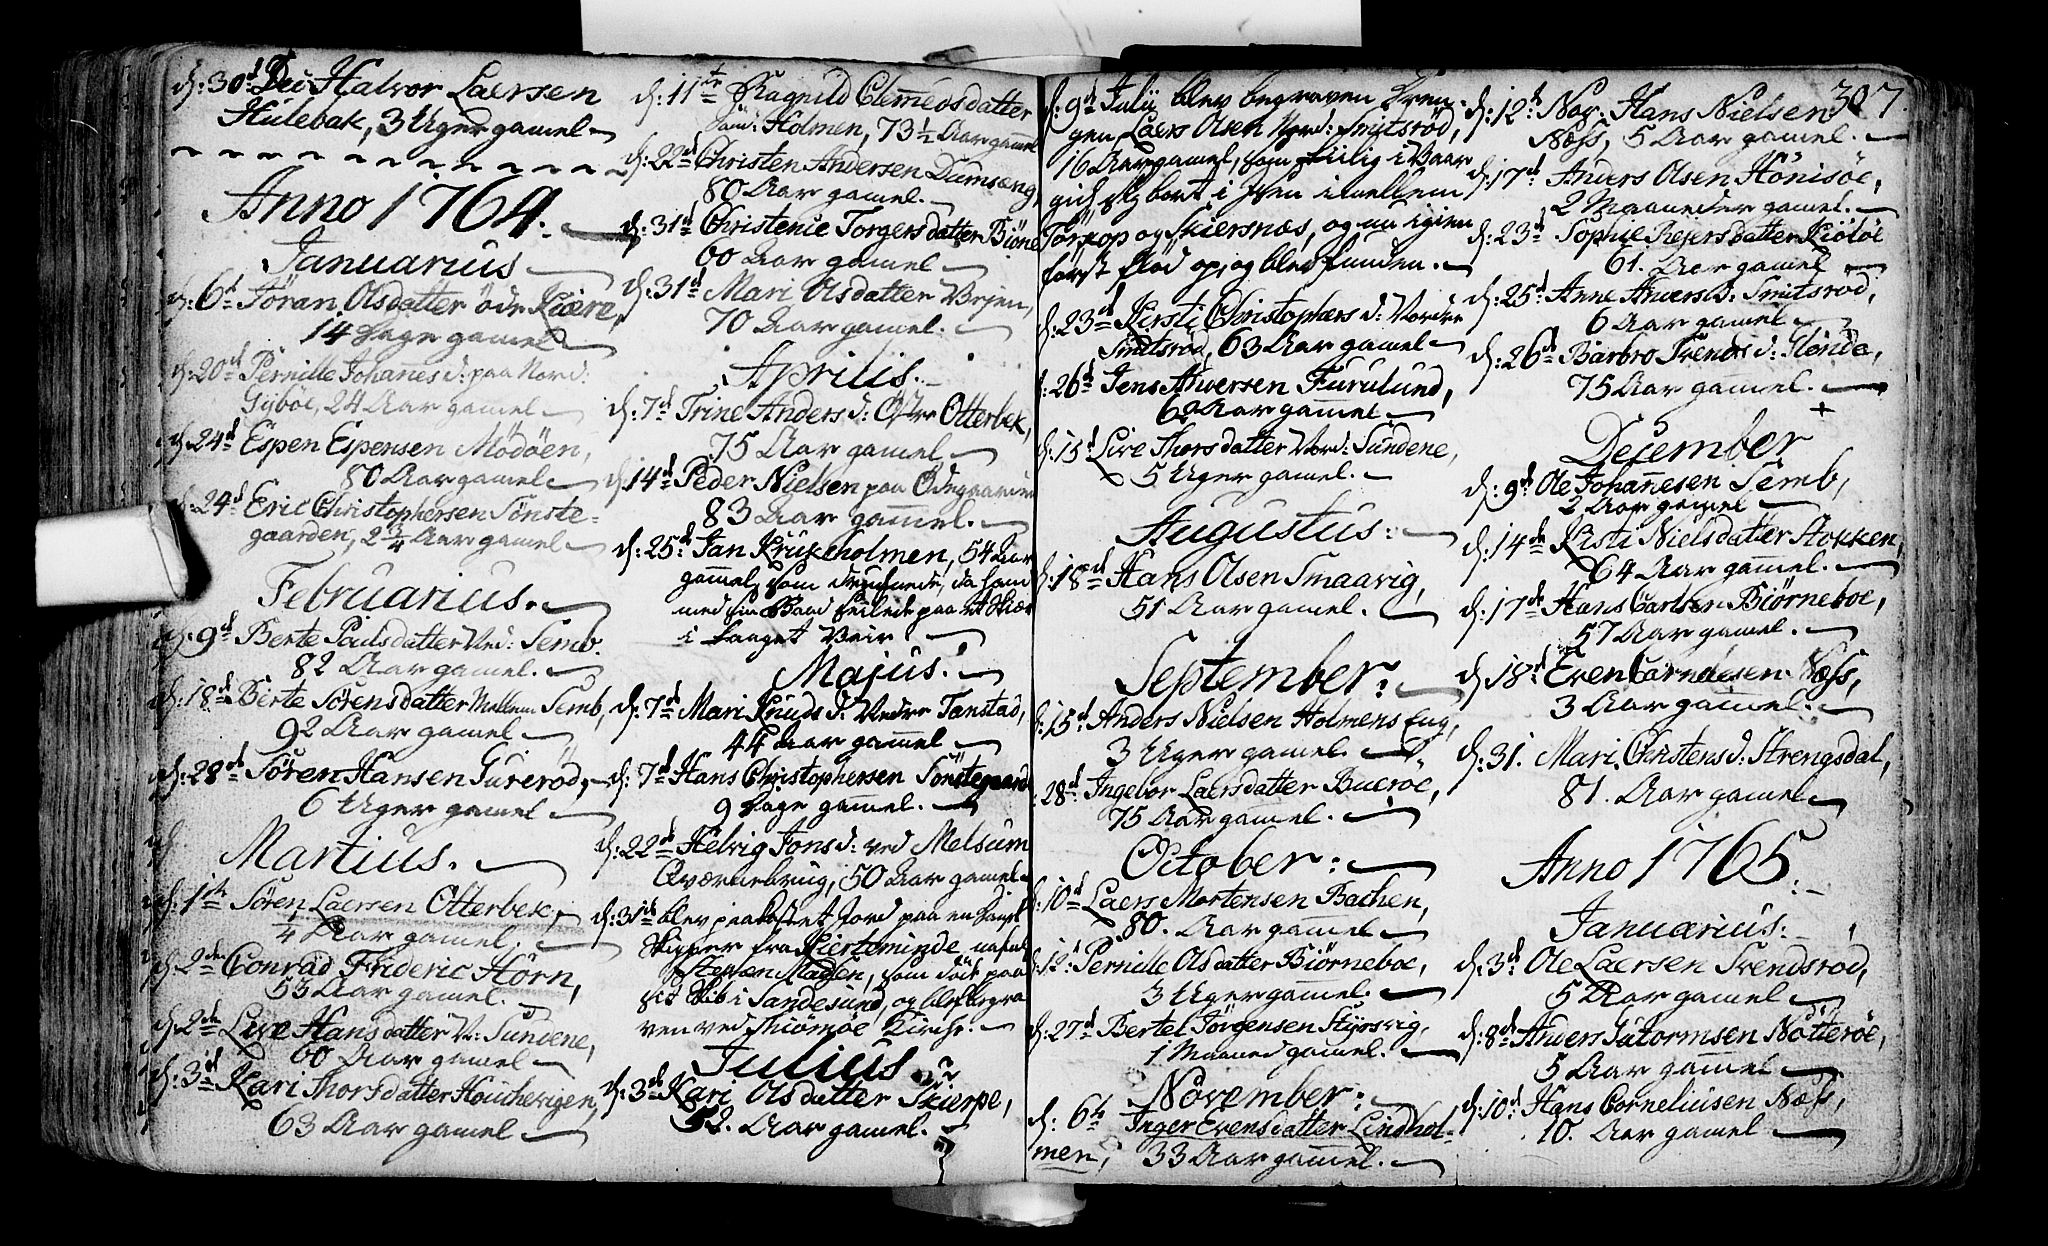 d: 30d Dec: Halvor Laersen
Hulebak, 3 Uger gamel
Anno 1764.
Januarius
d: 6t Jöran Olsdatter öde Kiere,
14 Dage gamel
d: 20d Pernille Johanes d: paa Nord:
Gÿboe, 24 Aar gamel
d: 24d Espen Espensen Mödöen,
80 Aar gamel
d: 24d Eric Christophersen Sönste-
gaarden, 2 3/4 Aar gamel
Februarius.
d: 9d Berte Pouls datter Ned: Semb.
82 Aar gamel.
d: 18d Berte Sörens datter Mellem Semb,
92 Aar gamel
d: 28d Sören Hansen Gureröd,
6 Uger gamel
Martius.
d: 1te Sören Laersen Otterbek,
1/4 Aar gamel.
d: 2den Conrad Frideric Hörn,
53 Aar gamel.
d: 2den Live Hans datter V: Sundene,
60 Aar gamel
d: 3d Kari Thors datter Houchevigen,
63 Aar gamel
d: 11te Ragnild Clemeds datter
Sönd: Holmen, 73 1/2 Aar gamel
d: 22d Christen Andersen Dumsæng
80 Aar gamel.
d: 31d Christence Torgers datter Biöne
60 Aar gamel
d: 31d Mari Olsdatter Vejen,
70 Aar gamel.
Aprilis.
d: 7d Trine Anders d: Östre Otterbek,
75 Aar gamel
d: 14d Peder Nielsen paa Ödegaarden
83 Aar gamel.
d: 25d Jan Krukeholmen, 54 Aar
gamel, som druknede, da han
med sin Baad seilede paa et Skiær
i haaget Veir
Majus.
d: 7d Mari Knuds d: Nedre Tanstad,
44 Aar gamel
d: 7d Hans Christophersen Sönstegaard
9 Dage gamel.
d: 22d Helvig Jons d: ved Melsum
Qværnebrug, 50 Aar gamel
d: 31d blev paakastet Jord paa en Dansk
Skipper fra Kierteminde nafnl
Steven Madsen, som döde paa
sit Skib i Sandesund, og blef begra
ven ved Thiömöe Kirche.
Julius
d: 3d Kari Olsdatter Skierpe,
52. Aar gamel.
d: 9d Julÿ blev begraven Dren-
gen Laers Olsen Nord: Smitsröd,
16 Aar gamel, som silig i Vaar
gik sig bort i Isen imellem
Torkop og Skiersnæs, og nu igien
först flöd op, og blev funden.
d: 23d Kersti Christophers d: Nordre
Smitsröd, 63 Aar gamel
d: 26d Jens Andersen Furulund,
62 Aar gamel
d: 15d Live Thors datter Nord: Sundene,
5 Uger gamel.
Augustus:
d: 18d Hans Olsen Smaavig,
51 Aar gamel.
September:
d: 15d Anders Nielsen Holmens Eng,
3 Uger gamel.
28d: Ingebor Laersdatter Bueröe,
75 Aar gamel.
October:
d: 10d Laers Mortensen Bachen,
80. Aar gamel
d: 12t Pernille Olsdatter Biörneboe,
3 Uger gamel.
d: 27d Bertel Jörgensen Styrsvig,
1 Maaned gamel.
November:
d: 6te Inger Evens datter Lindhol-
men, 33 Aar gamel.
307.
d: 12t Nov: Hans Nielsen
Næss, 5 Aar gamel.
d: 17d Anders Olsen Hönisöe,
2 Maaneder gamel.
d: 23d Sophie Rejersdatter Kiölöe
61. Aar gamel
d: 25d Anne Anders D: Smitsröd,
6 Aar gamel
d: 26d Barbro Svends d: Hende,
75 Aar gamel.
December
d: 9d Ole Johannesen Semb,
2 Aar gamel
d: 14de Kisti Nielsdatter Stokken,
64 Aar gamel.
d: 17de Hans Carlsen Biörneboe,
57 Aar gamel.
d: 18d Even Corneliesen Næss,
3 Aar gamel.
d: 31. Mari Christens d: Strengsdal,
81. Aar gamel
Anno 1765
Januarius:
d: 3d Ole Laersen Svendsrod,
5 Aar gamel
d: 8de Anders Gutormsen Nötteröe,
5 Aar gamel
d: 10d Hans Corneliusen Næss,
10. Aar gamel